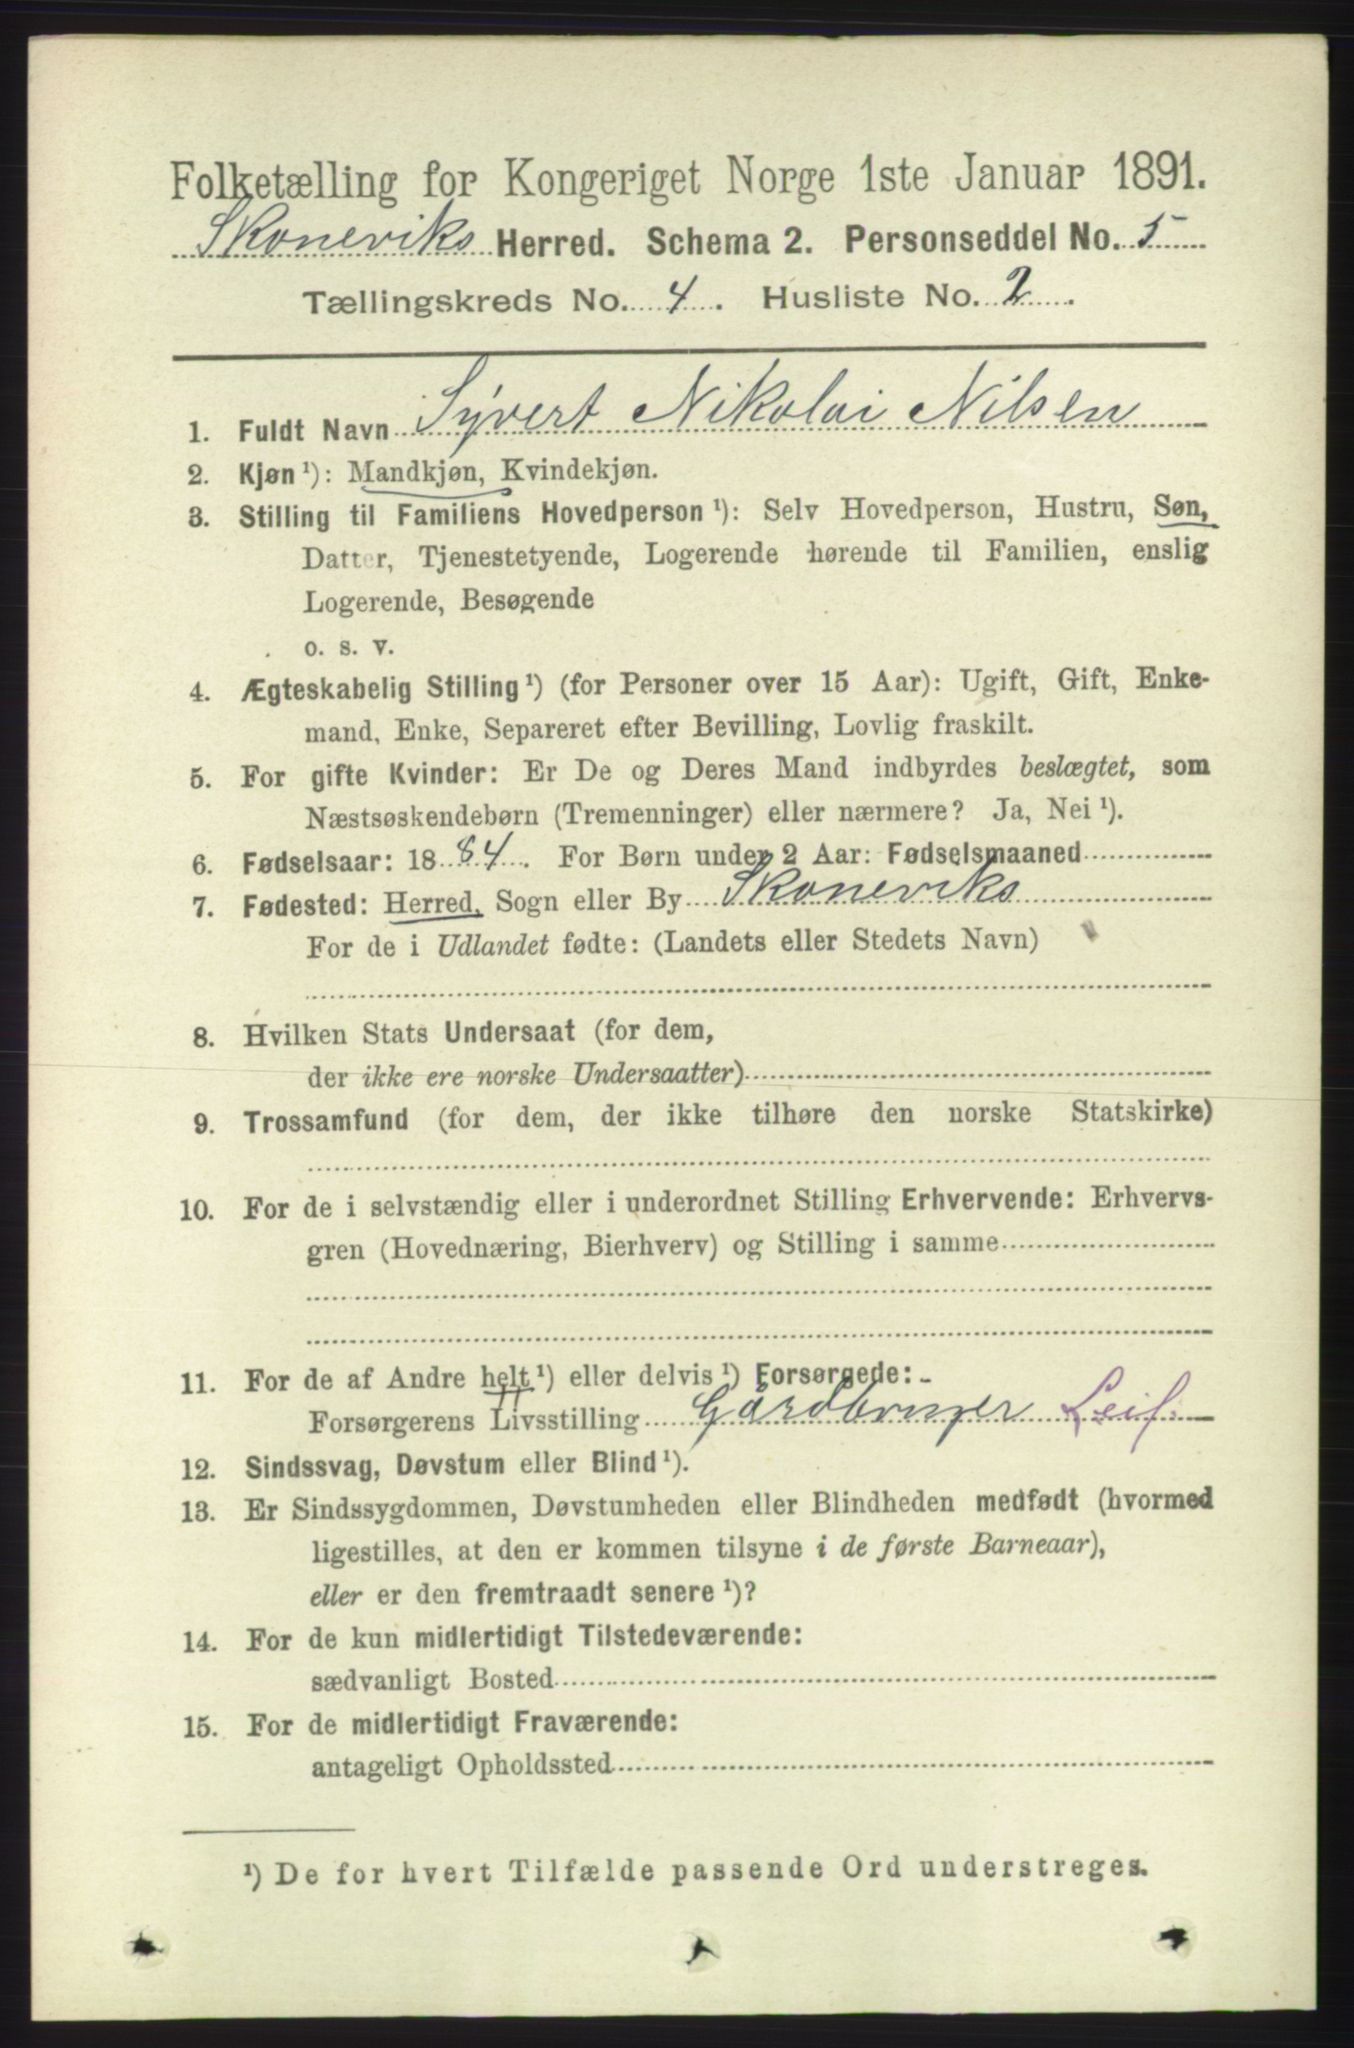 Folketælling for Kongeriget Norge 1ste Januar 1891.
Skoneviks Herred. Schema 2. Personseddel No. 5
Tællingskreds No. 4. Husliste No. 2.
1. Fuldt Navn Syvert Nikolai Nilsen
2. Kjøn ¹): Mandkjøn, Kvindekjøn.
3. Stilling til Familiens Hovedperson ¹): Selv Hovedperson, Hustru, Søn,
Datter, Tjenestetyende, Logerende hørende til Familien, enslig
Logerende, Besøgende
o. s. v.
4. Ægteskabelig Stilling ¹) (for Personer over 15 Aar): Ugift, Gift, Enke-
mand, Enke, Separeret efter Bevilling, Lovlig fraskilt.
5. For gifte Kvinder: Er De og Deres Mand indbyrdes beslægtet, som
Næstsøskendebørn (Tremenninger) eller nærmere? Ja, Nei ¹).
6. Fødselsaar: 1884. For Børn under 2 Aar: Fødselsmaaned
7. Fødested: Herred, Sogn eller By Skoneviks
For de i Udlandet fødte: (Landets eller Stedets Navn)
8. Hvilken Stats Undersaat (for dem,
der ikke ere norske Undersaatter)
9. Trossamfund (for dem, der ikke tilhøre den norske Statskirke)
10. For de i selvstændig eller i underordnet Stilling Erhvervende: Erhvervs-
gren (Hovednæring, Bierhverv) og Stilling i samme
11. For de af Andre helt ¹) eller delvis ¹) Forsørgede:
Forsørgerens Livsstilling Gårdbruger Leil.
12. Sindssvag, Døvstum eller Blind ¹).
13. Er Sindssygdommen, Døvstumheden eller Blindheden medfødt (hvormed
ligestilles, at den er kommen tilsyne i de første Barneaar),
eller er den fremtraadt senere ¹)?
14. For de kun midlertidigt Tilstedeværende:
sædvanligt Bosted
15. For de midlertidigt Fraværende:
antageligt Opholdssted
¹) De for hvert Tilfælde passende Ord understreges.